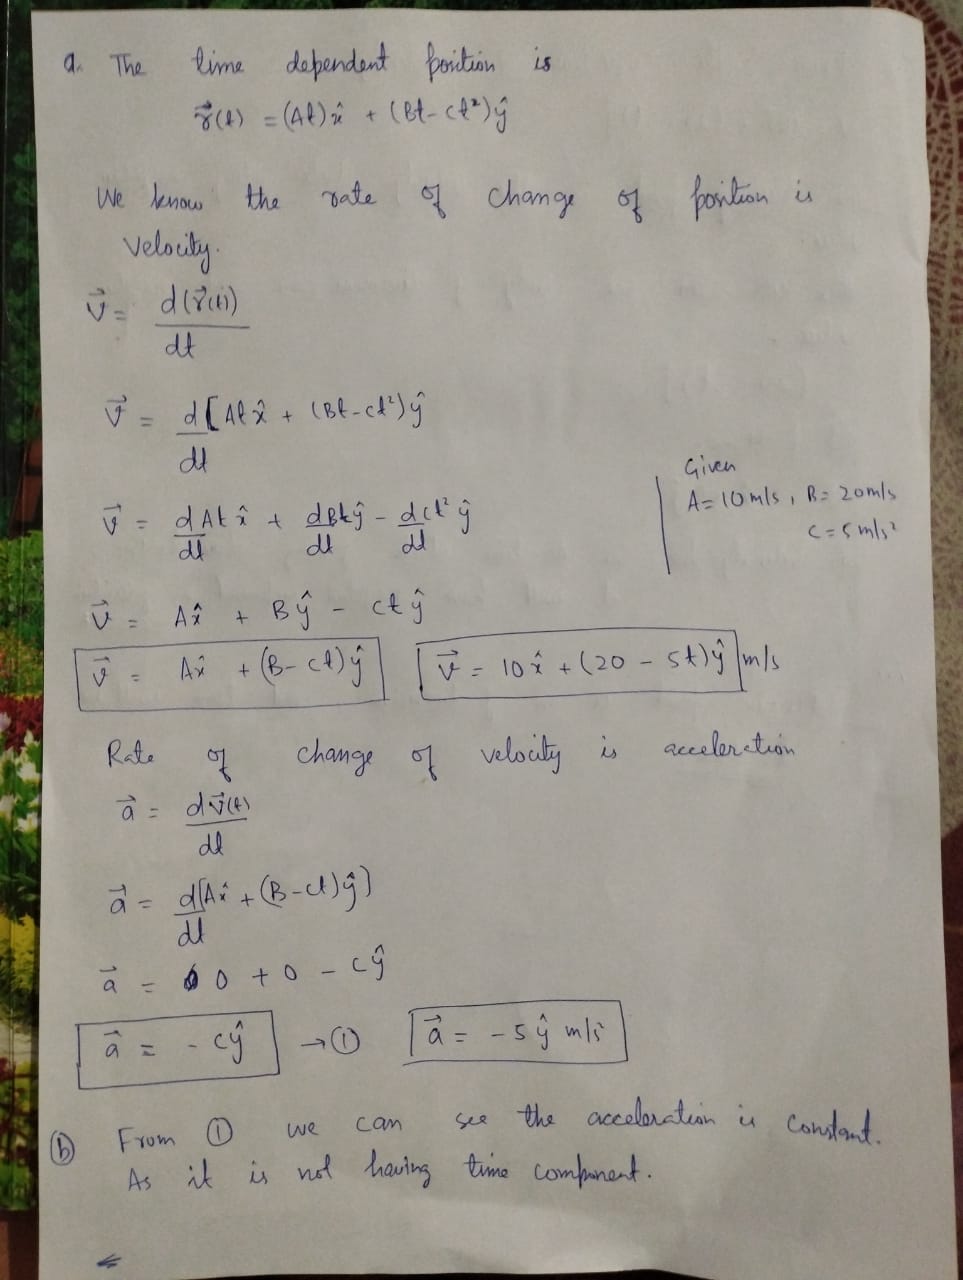 a. The time dependent position is
r⃗(t) = (At)x̂ + (Bt - Ct²)ŷ
We know the rate of change of position is
velocity.
v⃗ = d(r⃗(t))/dt
v⃗ = d/dt [At x̂ + (Bt - Ct²)ŷ
v⃗ = dAt x̂/dt + dBt ŷ/dt - dCt² ŷ/dt
Given
A = 10 m/s, B = 20 m/s
C = 5 m/s²
v⃗ = Ax̂ + Bŷ - Ct ŷ
v⃗ = Ax̂ + (B - Ct)ŷ v⃗ = 10x̂ + (20 - 5t)ŷ m/s
Rate of change of velocity is acceleration
a⃗ = dv⃗(t)/dt
a⃗ = d/dt [Ax̂ + (B - Ct)ŷ]
a⃗ = 0 + 0 - Cŷ
a⃗ = - Cŷ → ① a⃗ = - 5 ŷ m/s²
ⓑ From ① we can see the acceleration is constant.
As it is not having time component.